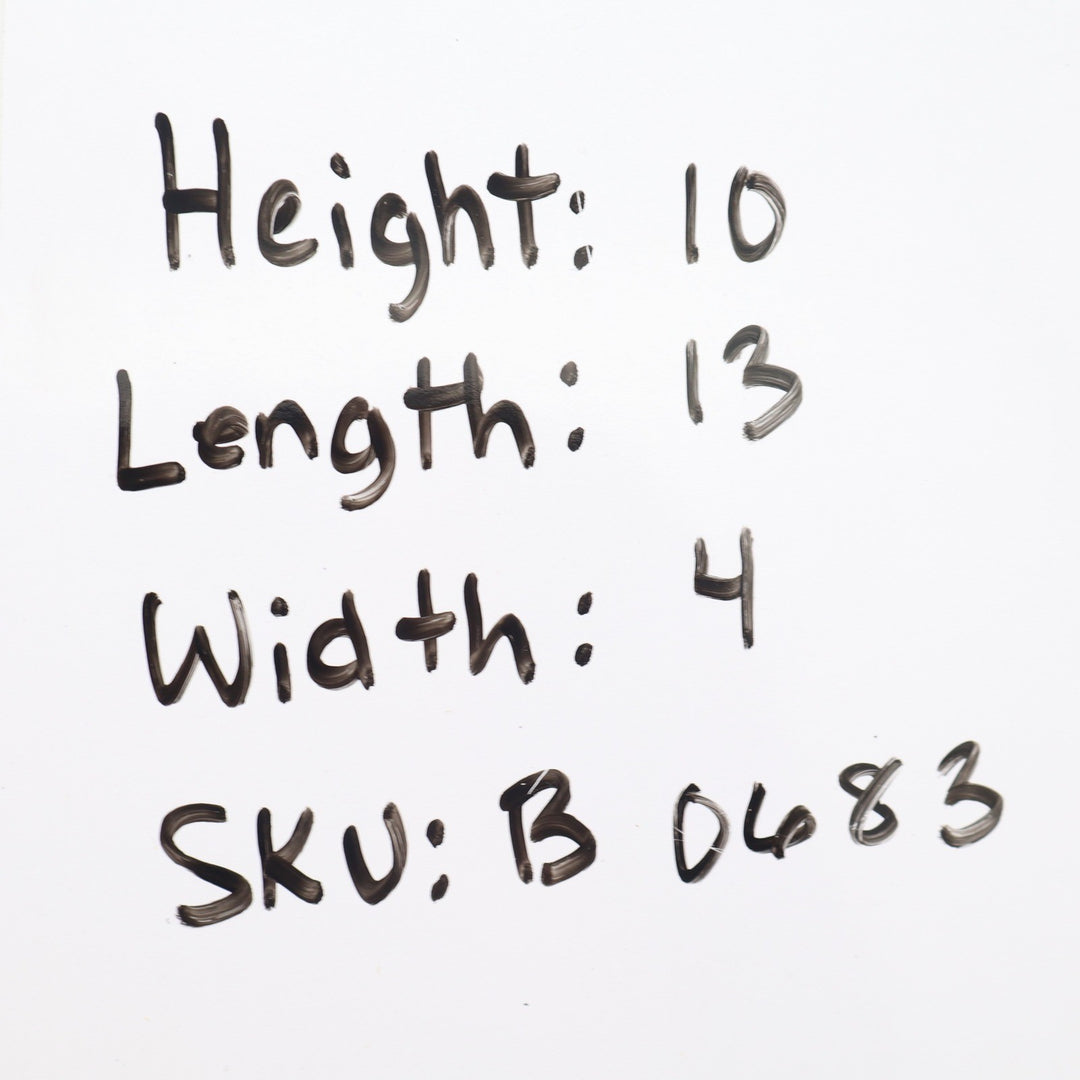 Height: 10
Length: 13
Width: 4
SKU: B 0683